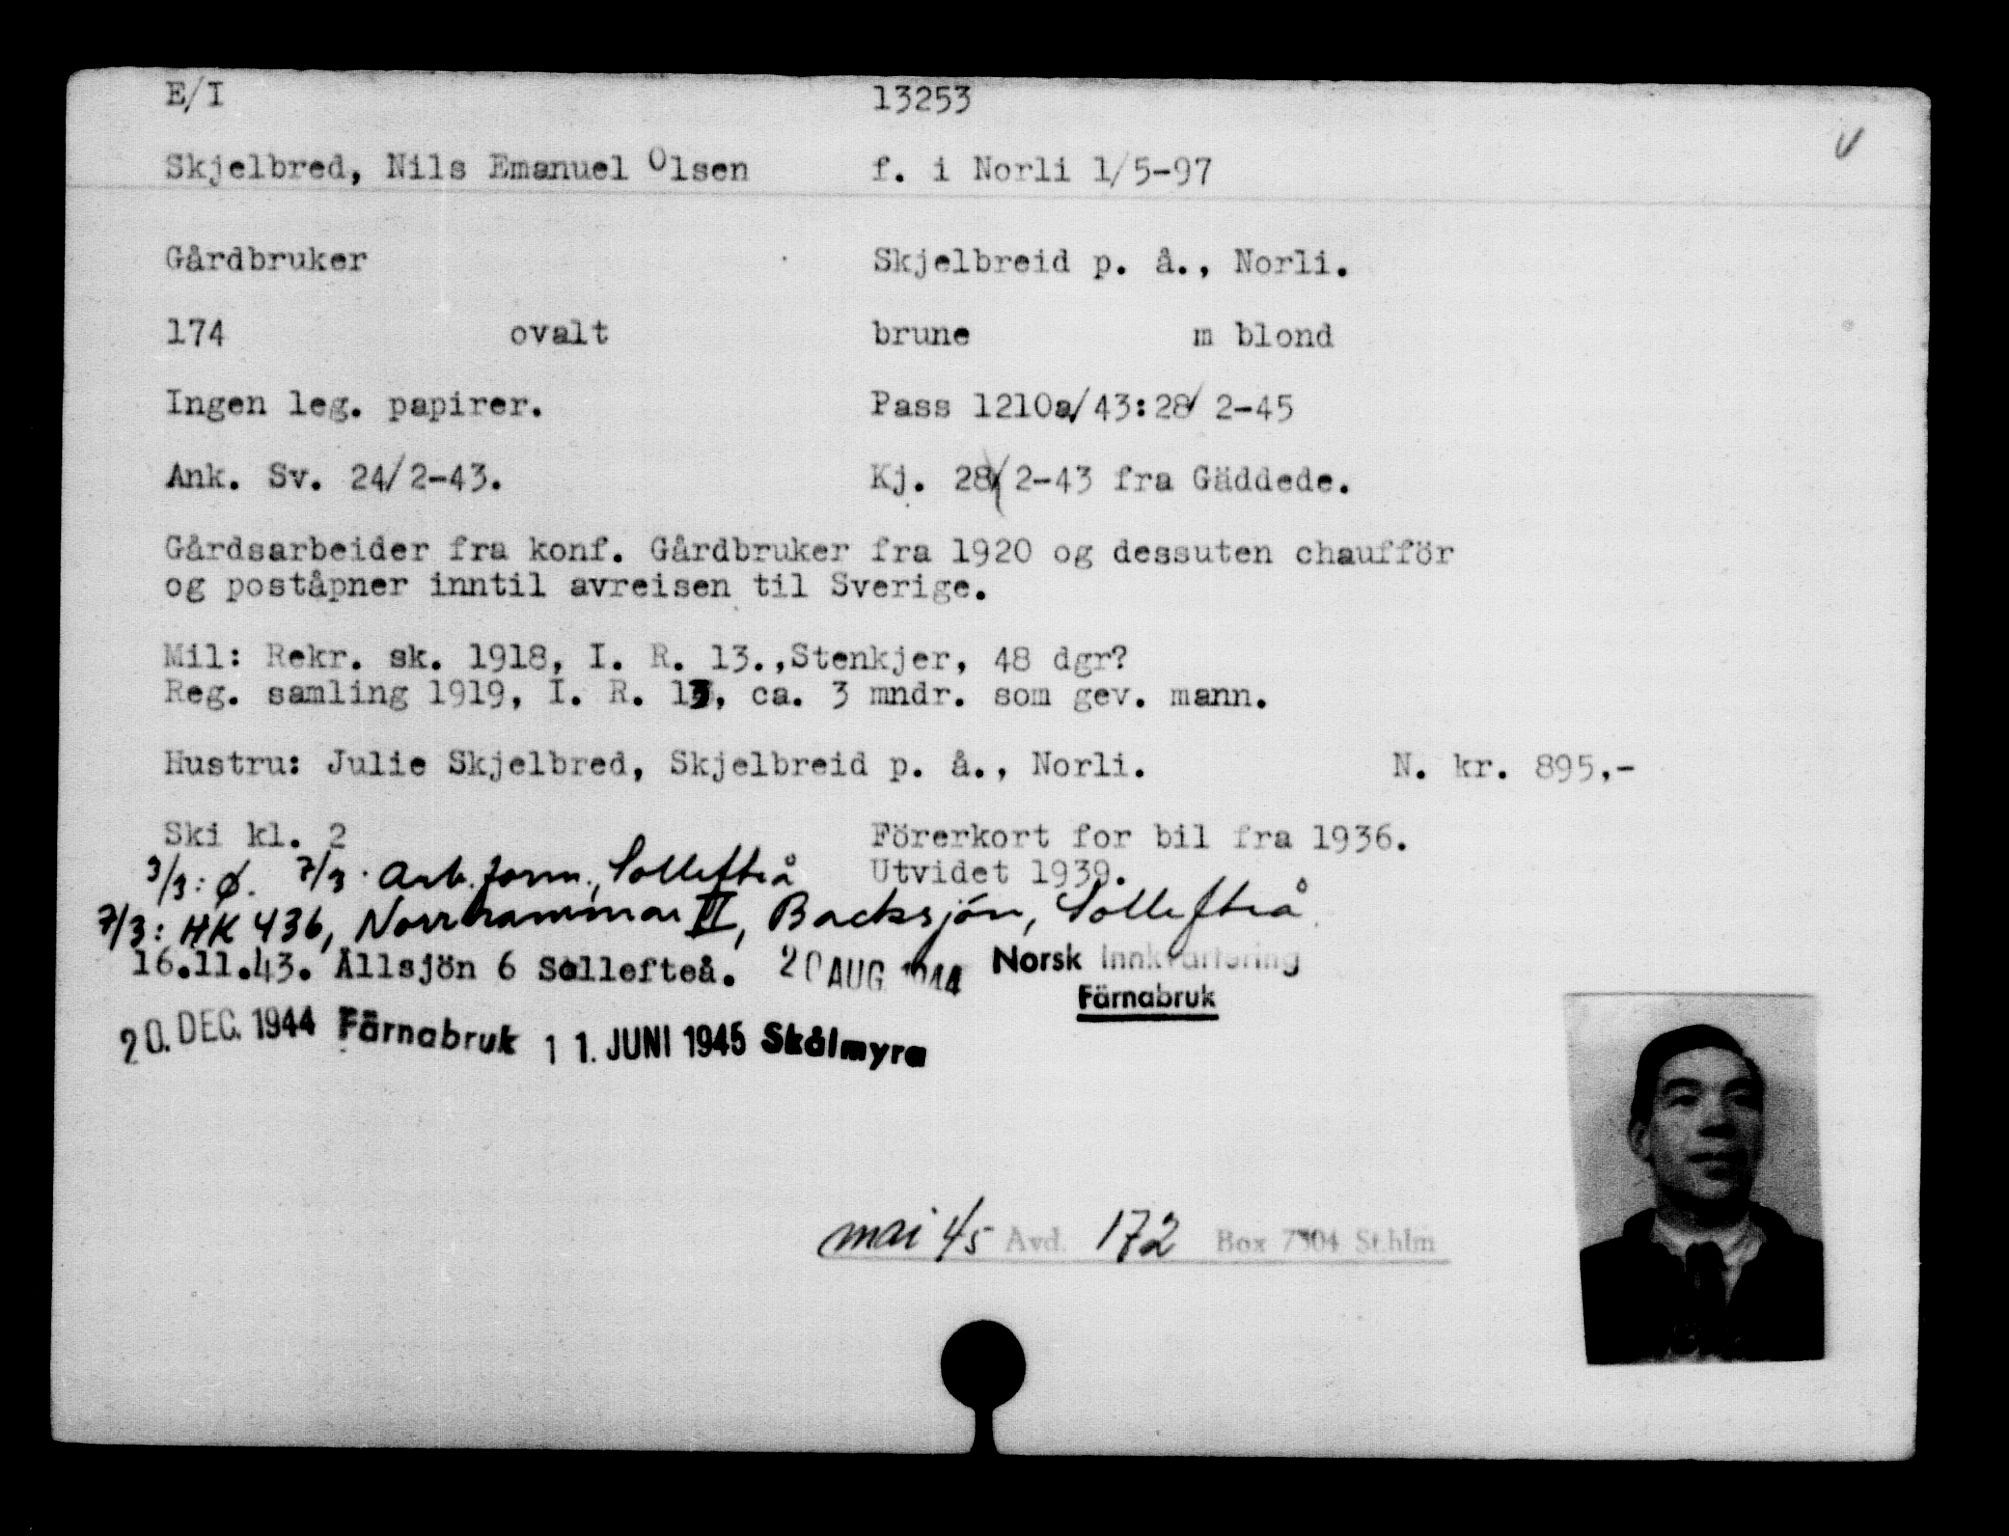 E/I 13253
Skjelbred, Nils Emanuel Olsen f. i Norli 1/5-97
Gårdbruker Skjelbreid p. å., Norli.
174 ovalt brune m blond
Ingen leg. papirer. Pass 1210a/43:28/2-45
Ank. Sv. 24/2-43. Kj. 28/2-43 fra Gäddede.
Gårdsarbeider fra konf. Gårdbruker fra 1920 og dessuten chaufför
og poståpner inntil avreisen til Sverige.
Mil: Rekr. sk. 1918, I. R. 13.,Stenkjer, 48 dgr?
Reg. samling 1919, I. R. 13, ca. 3 mndr. som gev. mann.
Hustru: Julie Skjelbred, Skjelbreid p. å., Norli. N. kr. 895,-
Ski kl. 2 Förerkort for bil fra 1936.
3/3: Ø. 7/3. Arb.form., Sollefteå Utvidet 1939.
7/3: HK 436, Norrhammar II, Backsjön, Sollefteå
16.11.43. Ållsjön 6 Sollefteå. 20 AUG 1944 Norsk Innkvartering
Färnabruk
20. DEC. 1944 Färnabruk 11. JUNI 1945 Skålmyra
mai 45 Avd. 172 Box 7304 Sthlm